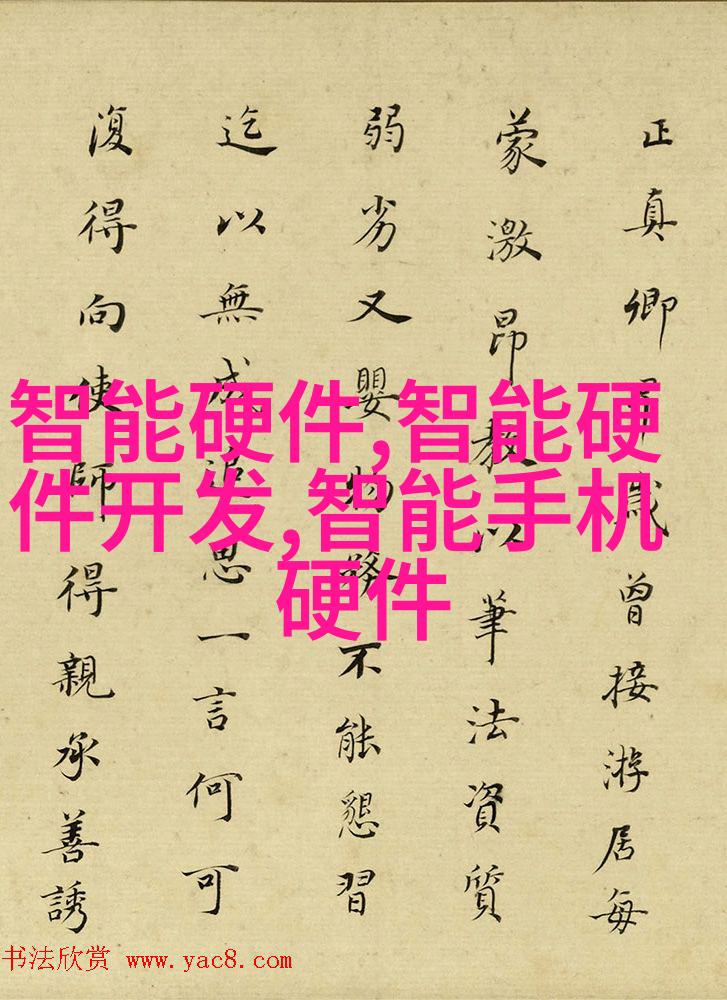 正真卿歲曾接游居每
蒙激昂教以筆法資質
弱劣又嬰物務不能懇習
迄以無成追思一言何可
復得向使師得親承善誘
智能硬件,智能硬
件开发,智能手机
硬件
书法欣赏 www.yac8.com